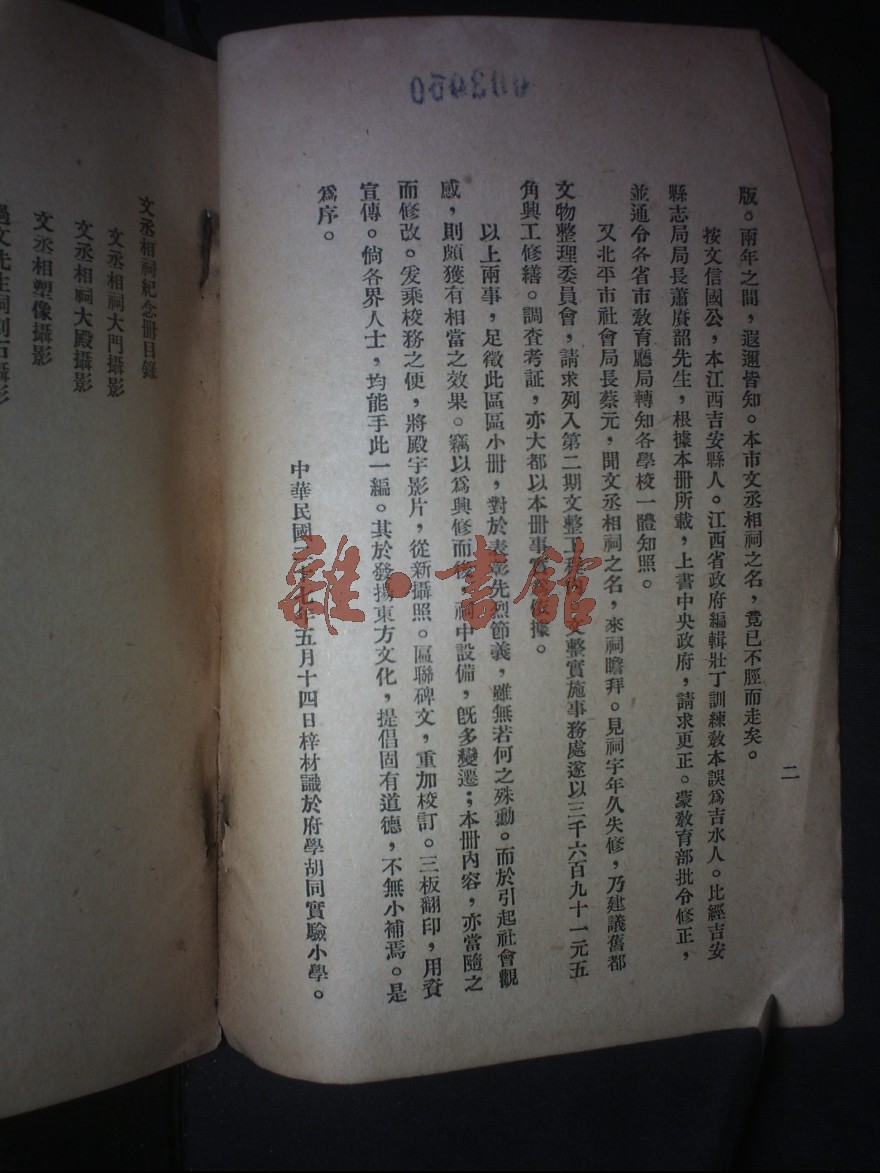 003060
二
版。兩年之間，遐邇皆知。本市文丞相祠之名，竟已不脛而走矣。
按文信國公，本江西吉安縣人。江西省政府編輯壯丁訓練教本誤爲吉水人。比經吉安
縣志局局長蕭賡韶先生，根據本冊所載，上書中央政府，請求更正。蒙教育部批令修正，
並通令各省市教育廳局轉知各學校一體知照。
又北平市社會局長蔡元，聞文丞相祠之名，來祠瞻拜。見祠宇年久失修，乃建議舊都
文物整理委員會，請求列入第二期文整工程 文整實施事務處遂以三千六百九十一元五
角興工修繕。調查考証，亦大都以本冊事實 據。
以上兩事，足徵此區區小冊，對於表彰先烈節義，雖無若何之殊勳。而於引起社會觀
感，則頗獲有相當之效果。竊以爲興修而後 祠中設備，旣多變遷；本冊內容，亦當隨之
而修改。爰乘校務之便，將殿宇影片，從新攝照。匾聯碑文，重加校訂。三板翻印，用資
宣傳。倘各界人士，均能手此一編。其於發揚東方文化，提倡固有道德，不無小補焉。是
爲序。
中華民國二十七年五月十四日梓材識於府學胡同實驗小學。
文丞相祠紀念冊目錄
文丞相祠大門攝影
文丞相祠大殿攝影
文丞相塑像攝影
過文先生祠刻石攝影
雜·書館